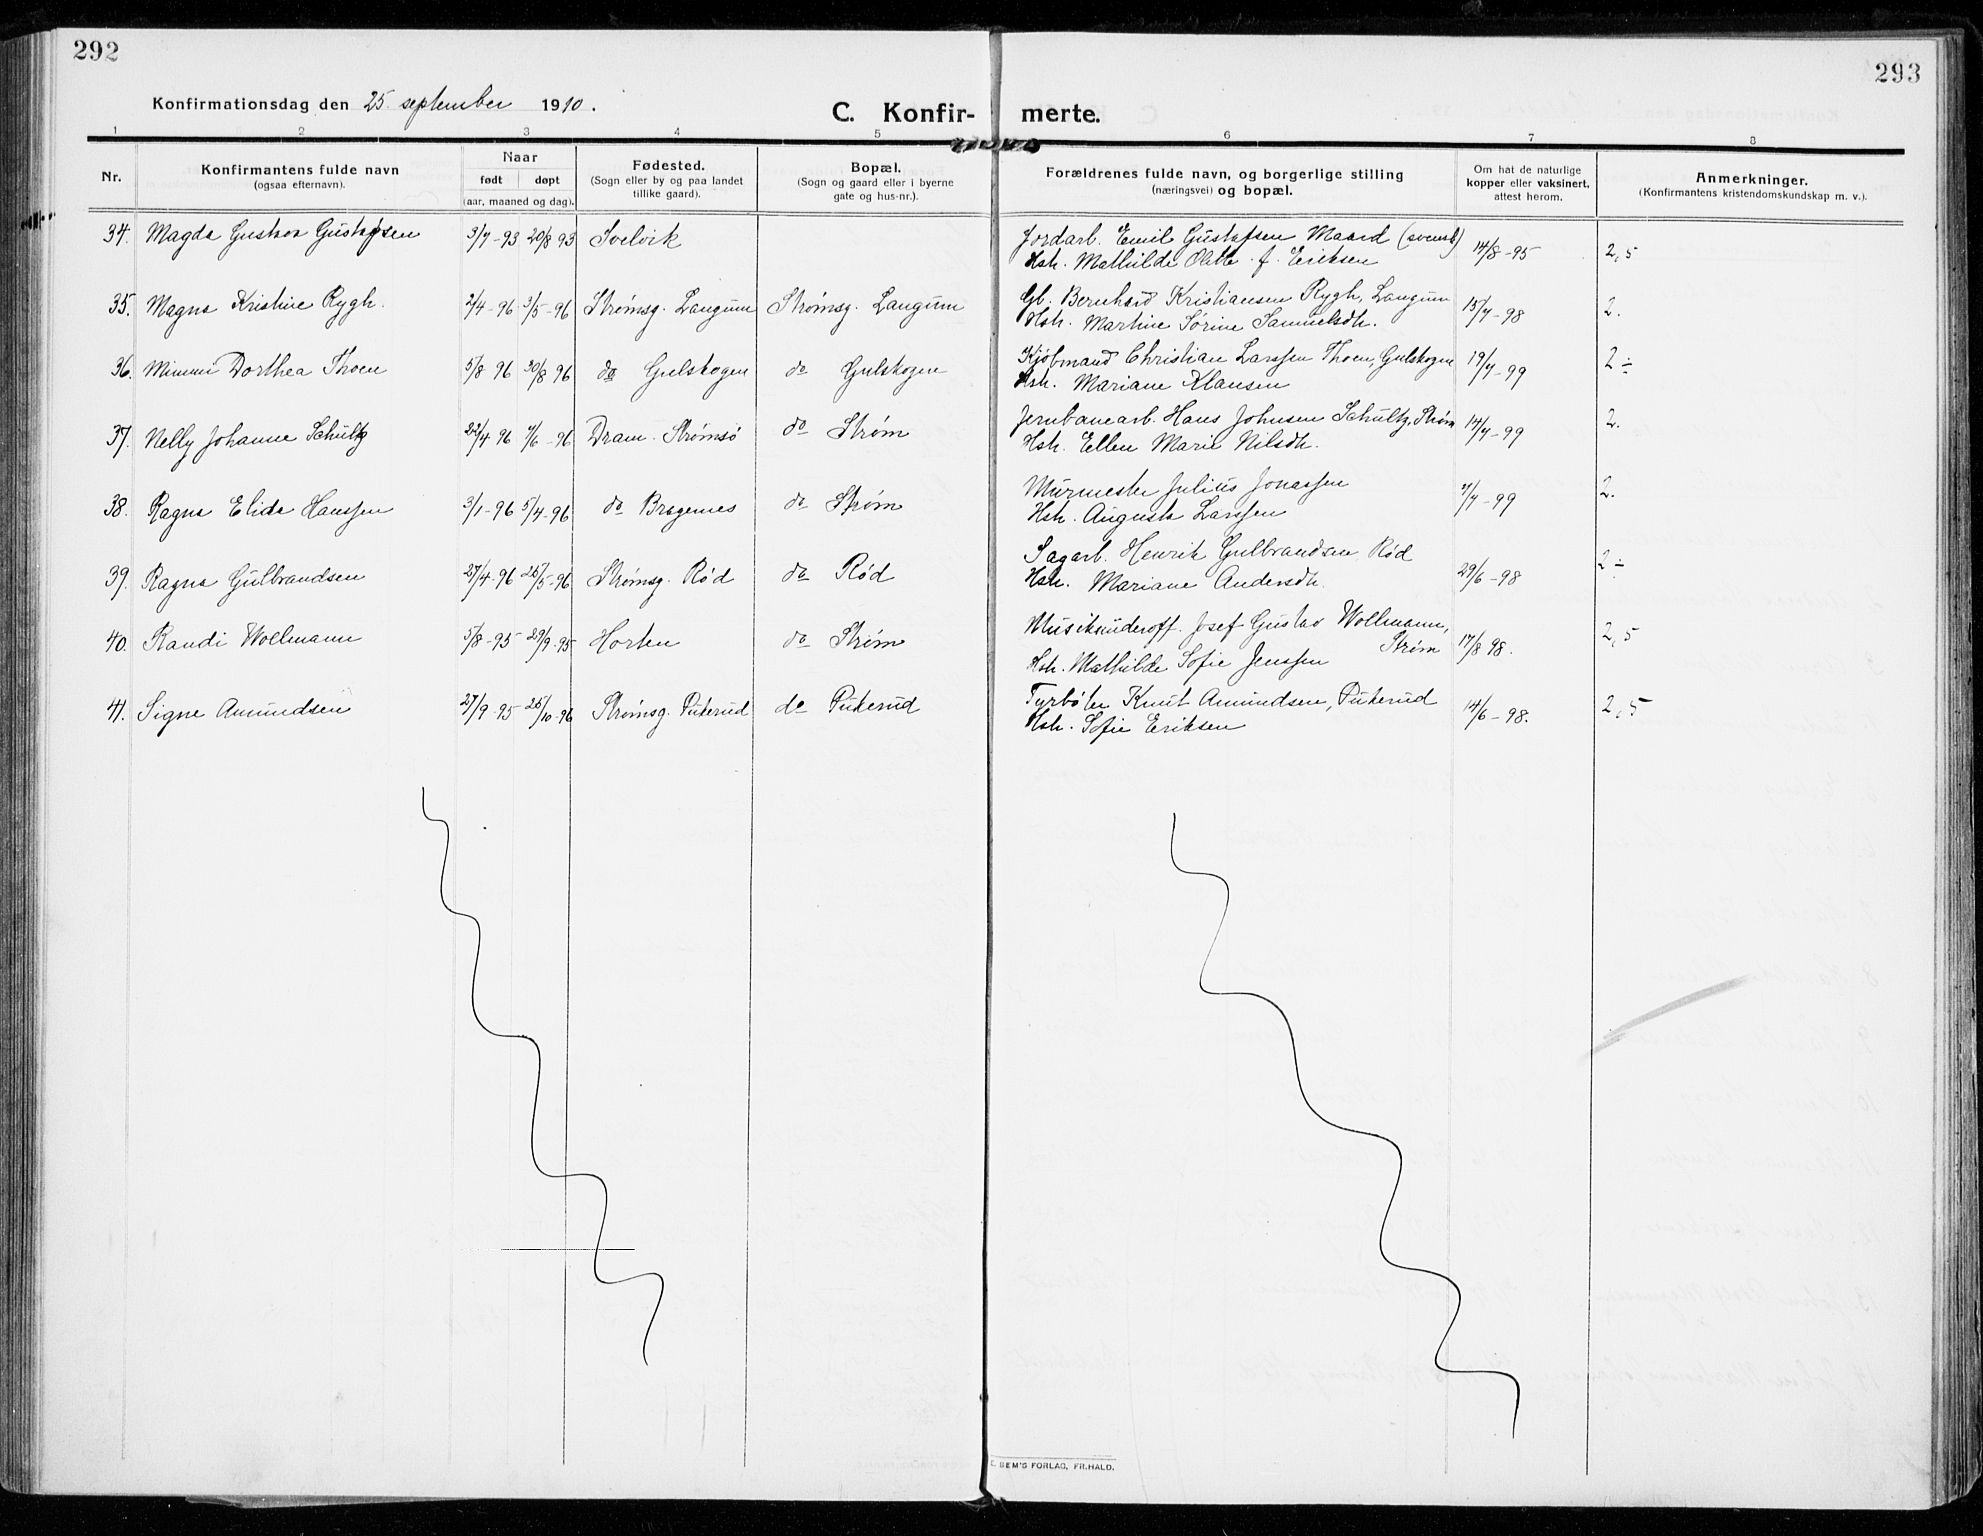 292
293
Konfirmationsdag den 25. september 1910.
C. Konfirmerte.
1 2 3 4 5 6 7 8
Nr.
Konfirmantens fulde navn
(ogsaa efternavn).
Naar
født døpt
(aar, maaned og dag).
Fødested.
(Sogn eller by og paa landet
tillike gaard).
Bopæl.
(Sogn og gaard eller i byerne
gate og hus-nr.).
Forældrenes fulde navn, og borgerlige stilling
(næringsvei) og bopæl.
Om hat de naturlige
kopper eller vaksinert,
attest herom.
Anmerkninger.
(Konfirmantens kristendomskundskap m. v.).
34. Magda Gustava Gustafsen 3/7-93 20/8 93 Svelvik Jordarb. Emil Gustafsen Maard (svensk) 14/8-95 2,5
Hstr. Mathilde Olette f. Eriksen
35. Magna Kristine Rygh. 2/4-96 3/5-96 Strømsg. Langum Strømsg. Langum Gb. Bernhard Kristiansen Rygh, Langum 15/7-98 2.
Hstr. Martine Sørine Samuelsdtr.
36. Mimmi Dorthea Thoen 5/8 96 30/8 96 do Gulskogen do Gulskogen Kjøbmand Christian Larssen Thoen, Gulskogen 19/7-99 2÷
Hstr. Mariane Klausen
37. Nelly Johanne Schultz 22/4 96 7/6-96 Dram. Strømsø do Strøm Jernbanearb. Hans Johnsen Schultz, Strøm 14/7-99 2.
Hstr. Ellen Marie Nilsdtr.
38. Ragna Elida Hanssen 3/1-96 5/4-96 do Bragernes do Strøm Murmester Julius Jonassen 7/7-99 2.
Hstr. Augusta Larssen
39. Ragna Gulbrandsen 27/4-96 26/5-96 Strømsg. Rød do Rød Sagarb. Henrik Gulbrandsen Rød 29/6-98 2÷
Hstr. Mariane Andersdtr.
40. Randi Wollmann 5/8-95 29/9-95 Horten do Strøm Musikunderoff. Josef Gustav Wollmann, Strøm 17/8 98. 2,5
Hstr. Mathilde Sofie Jenssen
41. Signe Amundsen 27/9-95 26/10-96 Strømsg. Pukerud do Pukerud Tyrbøter Knut Amundsen, Pukerud 14/6-98. 2,5
Hstr. Sofie Eriksen
SEM'S FORLAG, FR.HALD.